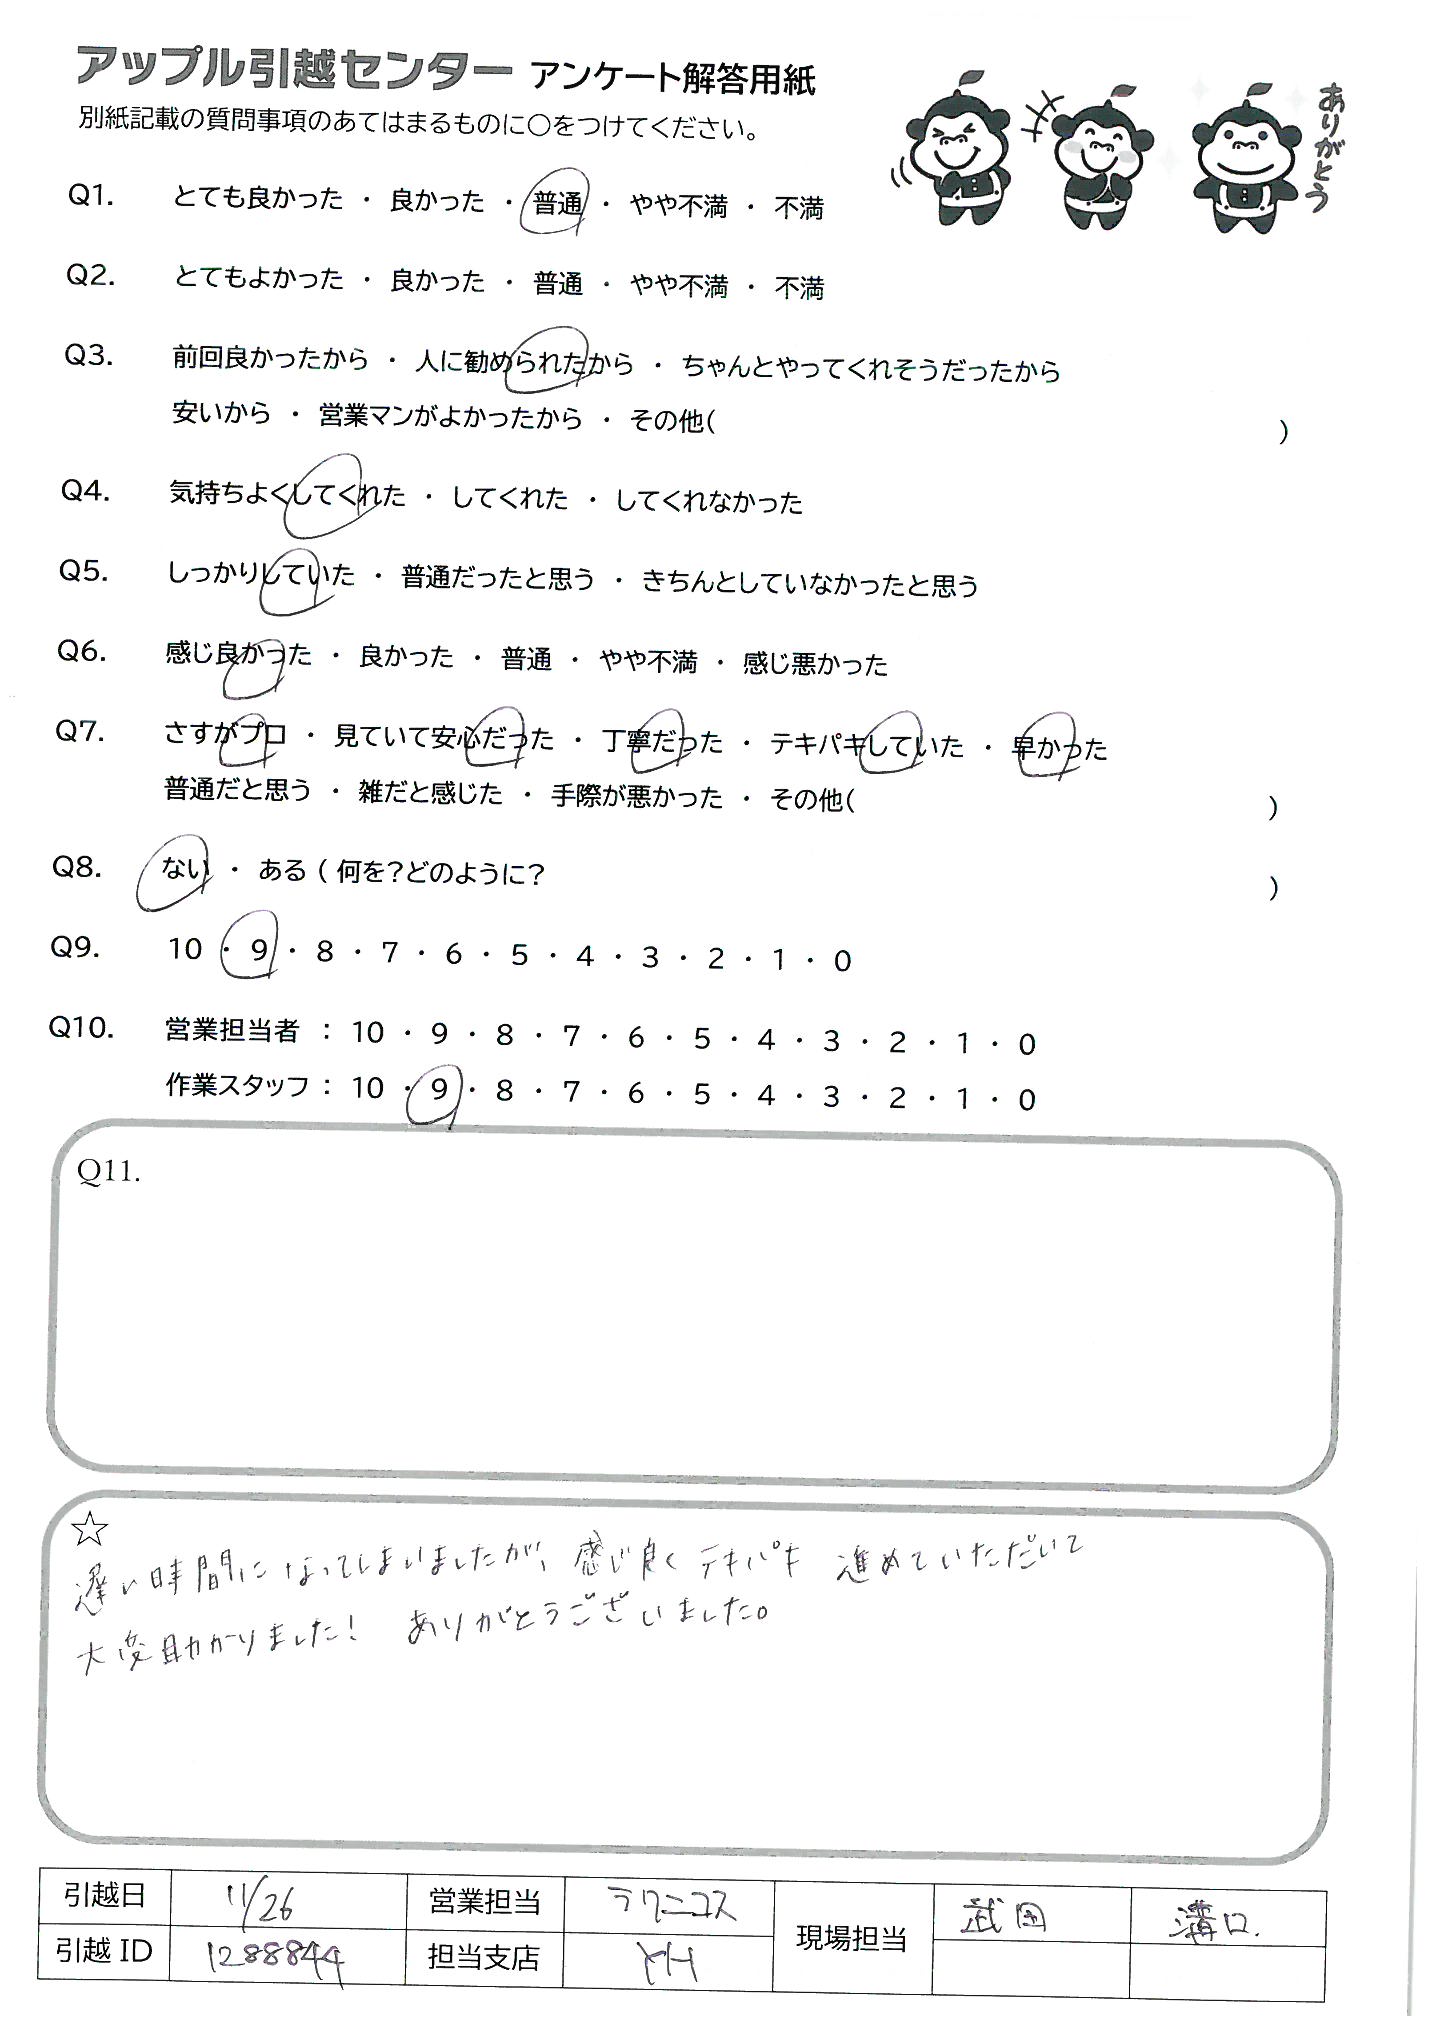 アップル引越センター アンケート解答用紙
別紙記載の質問事項のあてはまるものに○をつけてください。
ありがとう
Q1. とても良かった ・ 良かった ・ 普通 ・ やや不満 ・ 不満
Q2. とてもよかった ・ 良かった ・ 普通 ・ やや不満 ・ 不満
Q3. 前回良かったから ・ 人に勧められたから ・ ちゃんとやってくれそうだったから
安いから ・ 営業マンがよかったから ・ その他( )
Q4. 気持ちよくしてくれた ・ してくれた ・ してくれなかった
Q5. しっかりしていた ・ 普通だったと思う ・ きちんとしていなかったと思う
Q6. 感じ良かった ・ 良かった ・ 普通 ・ やや不満 ・ 感じ悪かった
Q7. さすがプロ ・ 見ていて安心だった ・ 丁寧だった ・ テキパキしていた ・ 早かった
普通だと思う ・ 雑だと感じた ・ 手際が悪かった ・ その他( )
Q8. ない ・ ある ( 何を?どのように? )
Q9. 10 ・ 9 ・ 8 ・ 7 ・ 6 ・ 5 ・ 4 ・ 3 ・ 2 ・ 1 ・ 0
Q10. 営業担当者 : 10 ・ 9 ・ 8 ・ 7 ・ 6 ・ 5 ・ 4 ・ 3 ・ 2 ・ 1 ・ 0
作業スタッフ : 10 ・ 9 ・ 8 ・ 7 ・ 6 ・ 5 ・ 4 ・ 3 ・ 2 ・ 1 ・ 0
Q11.
☆
遅い時間になってしまいましたが、感じ良くテキパキ 進めていただいて
大変助かりました! ありがとうございました。
引越日 11/26 営業担当 ラクニコス 現場担当 武田 溝口.
引越 ID 1288844 担当支店 YH